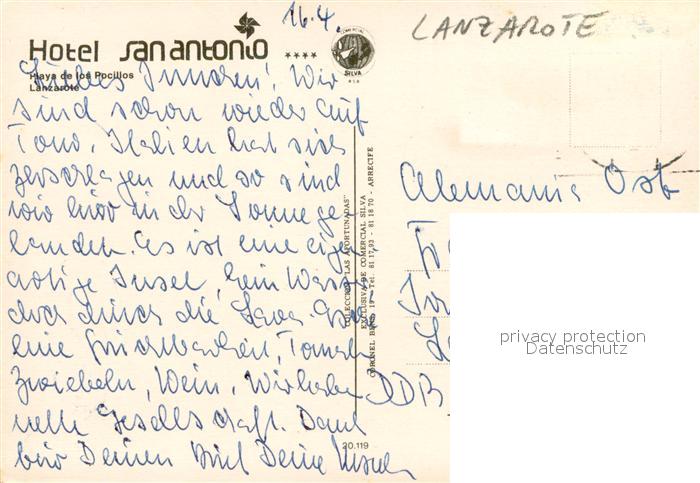 16.4.
LANZAROTE
Hotel sanantonio
****
SILVA
Playa de los Pocillos
Lanzarote
Liebes Innchen! Wir
sind schon wieder auf
Tour. Italien hat sich
zerschlagen und so sind
wir hier in der Sonne ge-
landen. Es ist eine eigen
artige Insel, kein Wasser
aber durch die Lava
eine Tomaten
Zwiebeln, Wein. Wir haben
nette Gesellschaft. Dank
für Deinen Deine
20.119
COLECCION "LAS AFORTUNADAS"
EXCLUSIVA DE COMERCIAL SILVA
CORONEL BENS, 19 - Tel: 81 17 93 - 81 18 70 - ARRECIFE
Alemania Ost
DDR
privacy protection
Datenschutz